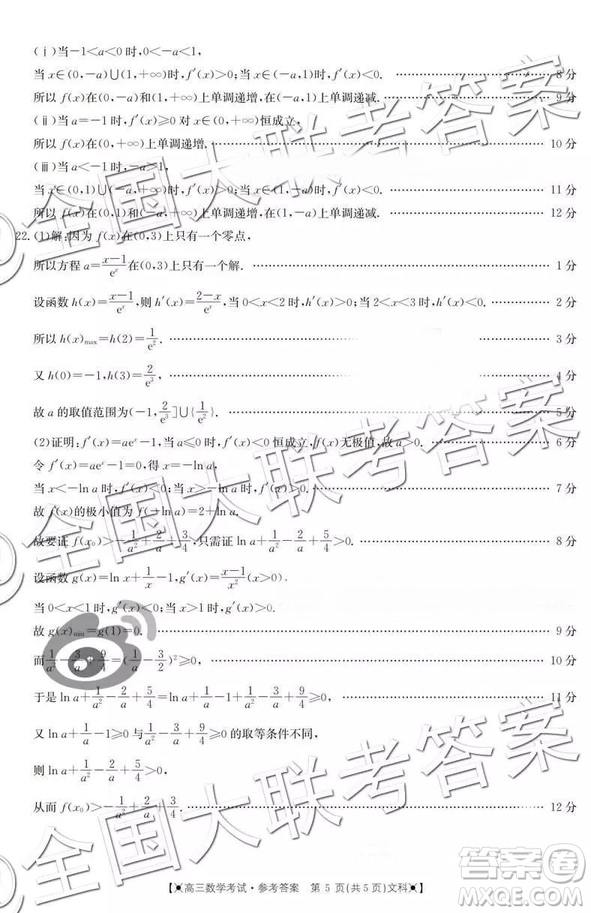 (ⅰ)当-1<a<0时,0<-a<1,
当x∈(0,-a)∪(1,+∞)时,f′(x)>0;当x∈(-a,1)时,f′(x)<0. 8分
所以f(x)在(0,-a)和(1,+∞)上单调递增,在(-a,1)上单调递减. 9分
(ⅱ)当a=-1时,f′(x)≥0对x∈(0,+∞)恒成立,
所以f(x)在(0,+∞)上单调递增. 10分
(ⅲ)当a<-1时,-a>1,
当x∈(0,1)∪(-a,+∞)时,f′(x)>0;当x∈(1,-a)时,f′(x)<0. 11分
所以f(x)在(0,1)和(-a,+∞)上单调递增,在(1,-a)上单调递减. 12分
22.(1)解:因为f(x)在(0,3)上只有一个零点,
所以方程a=(x-1)/eˣ在(0,3)上只有一个解. 1分
设函数h(x)=(x-1)/eˣ,则h′(x)=(2-x)/eˣ,当0<x<2时,h′(x)>0;当2<x<3时,h′(x)<0. 2分
所以h(x)max=h(2)=1/e². 3分
又h(0)=-1,h(3)=2/e³, 4分
故a的取值范围为(-1,2/e³]∪{1/e²}. 5分
(2)证明:f′(x)=aeˣ-1,当a≤0时,f′(x)<0恒成立,f(x)无极值,故a>0. 6分
令f′(x)=aeˣ-1=0,得x=-ln a,
当x<-ln a时,f′(x)<0;当x>-ln a时,f′(x)>0. 7分
故f(x)的极小值为f(-ln a)=2+ln a.
故要证f(x₀)>-1/a²+2/a+3/4,只需证ln a+1/a²-2/a+5/4>0. 8分
设函数g(x)=ln x+1/x-1,g′(x)=(x-1)/x²(x>0).
当0<x<1时,g′(x)<0;当x>1时,g′(x)>0.
故g(x)min=g(1)=0. 9分
而1/a²-3/a+9/4=(1/a-3/2)²≥0, 10分
于是ln a+1/a²-2/a+5/4=ln a+1/a-1+1/a²-3/a+9/4≥0. 11分
又ln a+1/a-1≥0与1/a²-3/a+9/4≥0的取等条件不同,
则ln a+1/a²-2/a+5/4>0,
从而f(x₀)>-1/a²+2/a+3/4. 12分
【高三数学考试·参考答案 第5页(共5页)文科】
全国大联考答案
全国大联考答案
全国大联考答案
作业答案卷
MXQE.COM